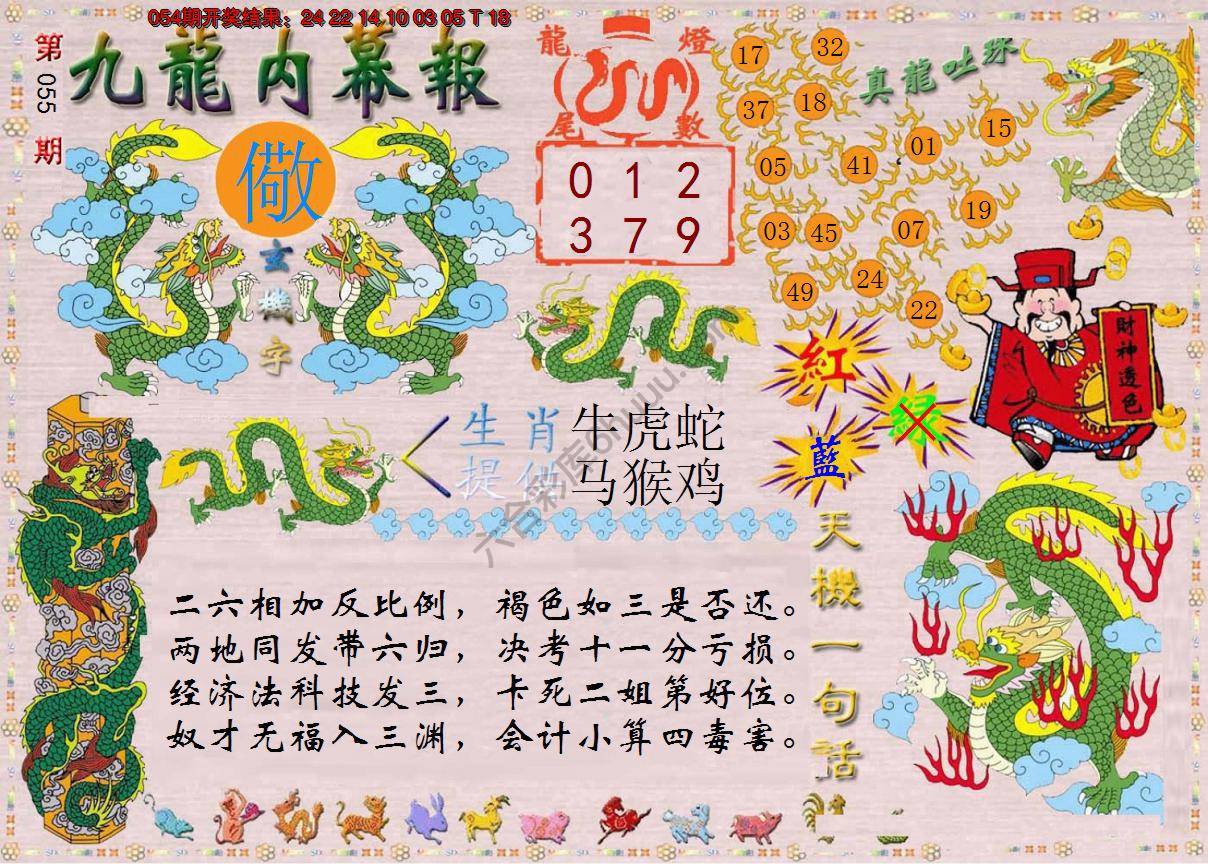 054期开奖结果：24 22 14 10 03 05 T 18
第055期
九龍内幕報
儆
玄機字
龍燈
尾數
0 1 2
3 7 9
真龍吐珠
17
32
37
18
05
41
01
15
03
45
07
19
49
24
22
財神透色
紅
绿
藍
生肖
提供
牛虎蛇
马猴鸡
天機一句話
二六相加反比例，褐色如三是否还。
两地同发带六归，决考十一分亏损。
经济法科技发三，卡死二姐第好位。
奴才无福入三渊，会计小算四毒害。